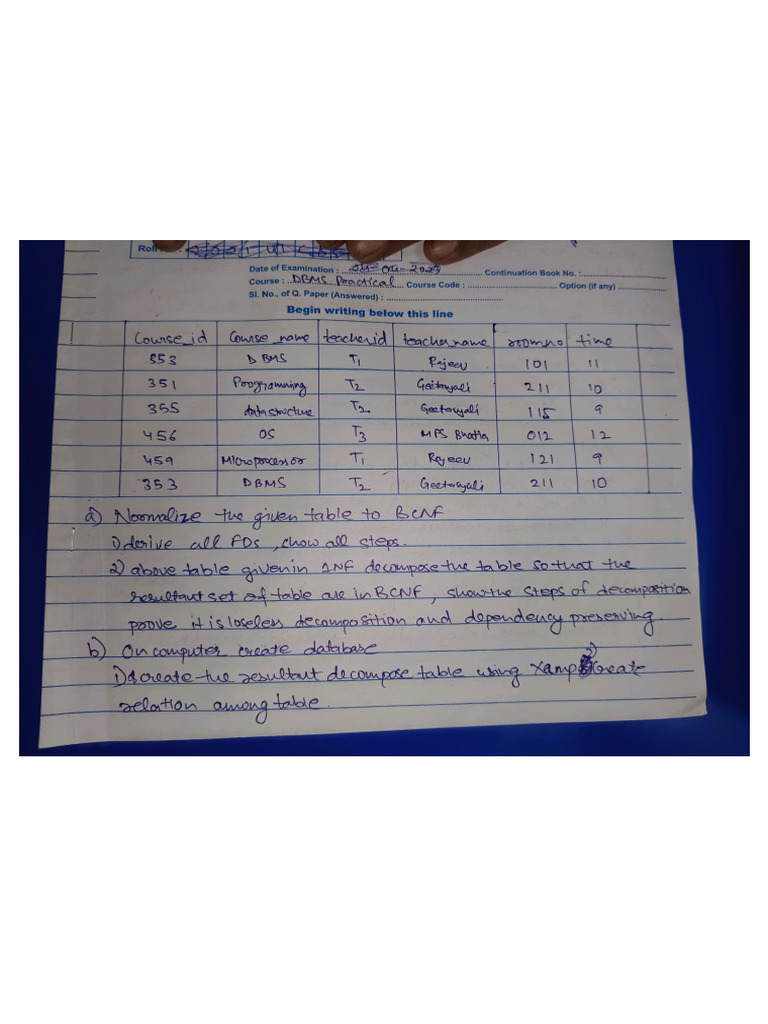 Roll
Date of Examination : Continuation Book No. :
Course : DBMS Practical Course Code : Option (if any)
Sl. No., of Q. Paper (Answered) :
Begin writing below this line
Course_id Course_name teacherid teachername roomno time
353 DBMS T1 Rajeev 101 11
351 Programming T2 Geetanjali 211 10
355 datastructure T2 Geetanjali 115 9
456 OS T3 MPS Bhatia 012 12
459 Microprocessor T1 Rajeev 121 9
353 DBMS T2 Geetanjali 211 10
a) Normalize the given table to BCNF
1) derive all FDs, show all steps.
2) above table given in 1NF decompose the table so that the
resultant set of table are in BCNF, show the steps of decomposition
prove it is loseless decomposition and dependency preserving.
b) On computer create database
1) create the resultant decompose table using Xamp 2) Create
relation among table.